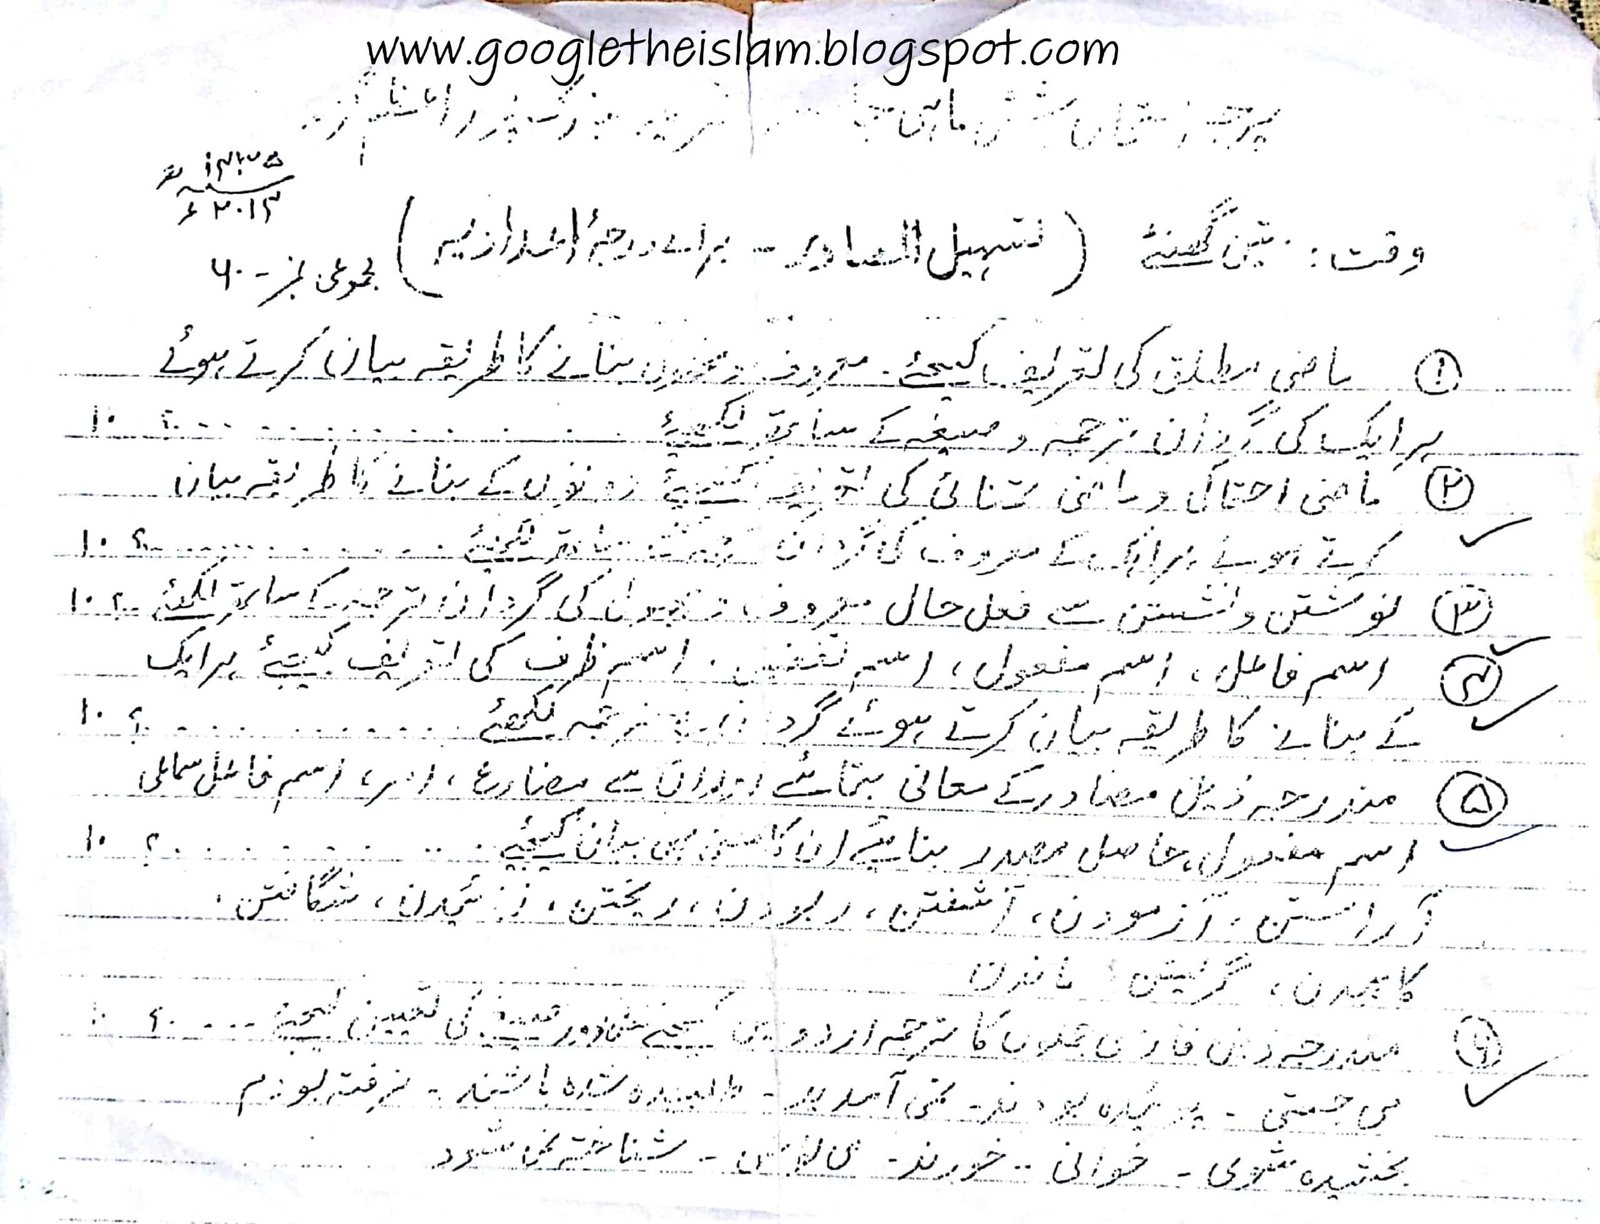 www.googletheislam.blogspot.com
پرچہ امتحان ششماہی
۱۴۳۵ھ
۲۰۱۴ء
وقت: تین گھنٹے (تسہیل المصادر - برائے درجۂ اعدادیہ) مجموعی نمبر - ۶۰
① ماضی مطلق کی تعریف کیجئے۔ معروف و مجہول بنانے کا طریقہ بیان کرتے ہوئے
ہر ایک کی گردان ترجمہ و صیغہ کے ساتھ لکھیئے ........ ؟ ۱۰
② ماضی احتمالی و ماضی تمنائی کی تعریف کیجئے دونوں کے بنانے کا طریقہ بیان
کرتے ہوئے ہر ایک کے معروف کی گردان ساتھ لکھیئے ........ ؟ ۱۰
③ نوشتن و نشستن سے فعل حال معروف و مجہول کی گردان ترجمہ کے ساتھ لکھئے ؟ ۱۰
④ اسم فاعل، اسم مفعول، اسم تفضیل، اسم ظرف کی تعریف کیجئے ہر ایک
کے بنانے کا طریقہ بیان کرتے ہوئے گردان مع ترجمہ لکھئے ........ ؟ ۱۰
⑤ مندرجہ ذیل مصادر کے معانی بتائیے اور ان سے مضارع، امر، اسم فاعل سماعی
اسم مفعول، حاصل مصدر بنائیے ان کا معنی بھی بیان کیجئے ........ ؟ ۱۰
آراستن، آزمودن، آشفتن، ربودن، ریختن، شگافتن،
کاہیدن، گریستن، ماندن
⑥ مندرجہ ذیل فارسی جملوں کا ترجمہ اردو میں کیجئے اور صیغے کی تعیین کیجئے .... ؟ ۱۰
می جستی - بودند - نمی آمدید - طلبیدہ شدہ باشند - نرفتہ بودم
بخشیدہ شوی - خوانی - خورند - شناختہ می شود